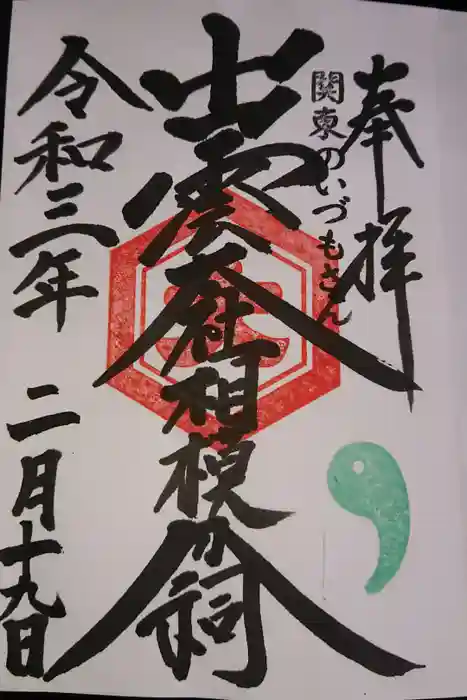 奉拝
関東のいづもさん
出雲大社相模分祠
令和三年 二月十九日